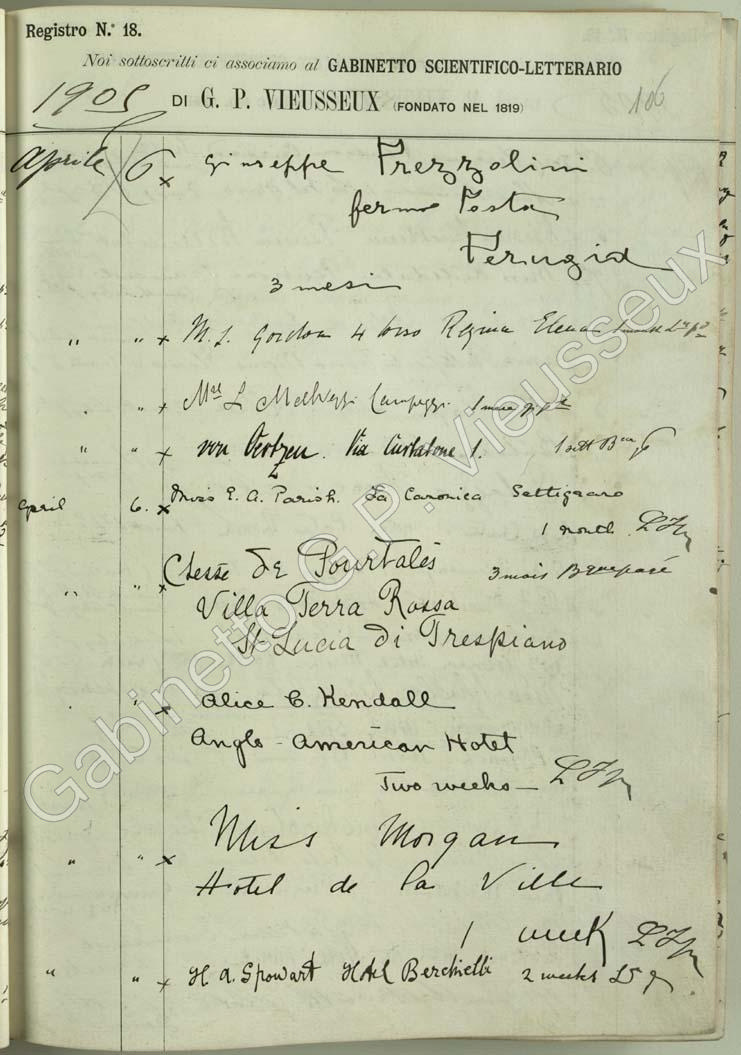 Registro N.º 18.
Noi sottoscritti ci associamo al GABINETTO SCIENTIFICO-LETTERARIO
DI G. P. VIEUSSEUX (FONDATO NEL 1819)
1905
106
Aprile 6 x Giuseppe Prezzolini
fermo Posta
Perugia
3 mesi
" " x M. L. Gordon 4 Corso Regina Elena
" x L Malvezzi Campeggi
" " x von Oertzen. Via Curtatone 1.
April 6. x Miss E. A. Parish. La Canonica Settignano
1 month
" " x Ctesse de Pourtalès 3 mois
Villa Terra Rossa
St Lucia di Trespiano
" x Alice C. Kendall
Anglo-American Hotel
Two weeks
" " x Miss Morgan
Hotel de la Ville
1 week
" " x H A. Spowart Hotel Berchielli 2 weeks
Gabinetto G.P. Vieusseux